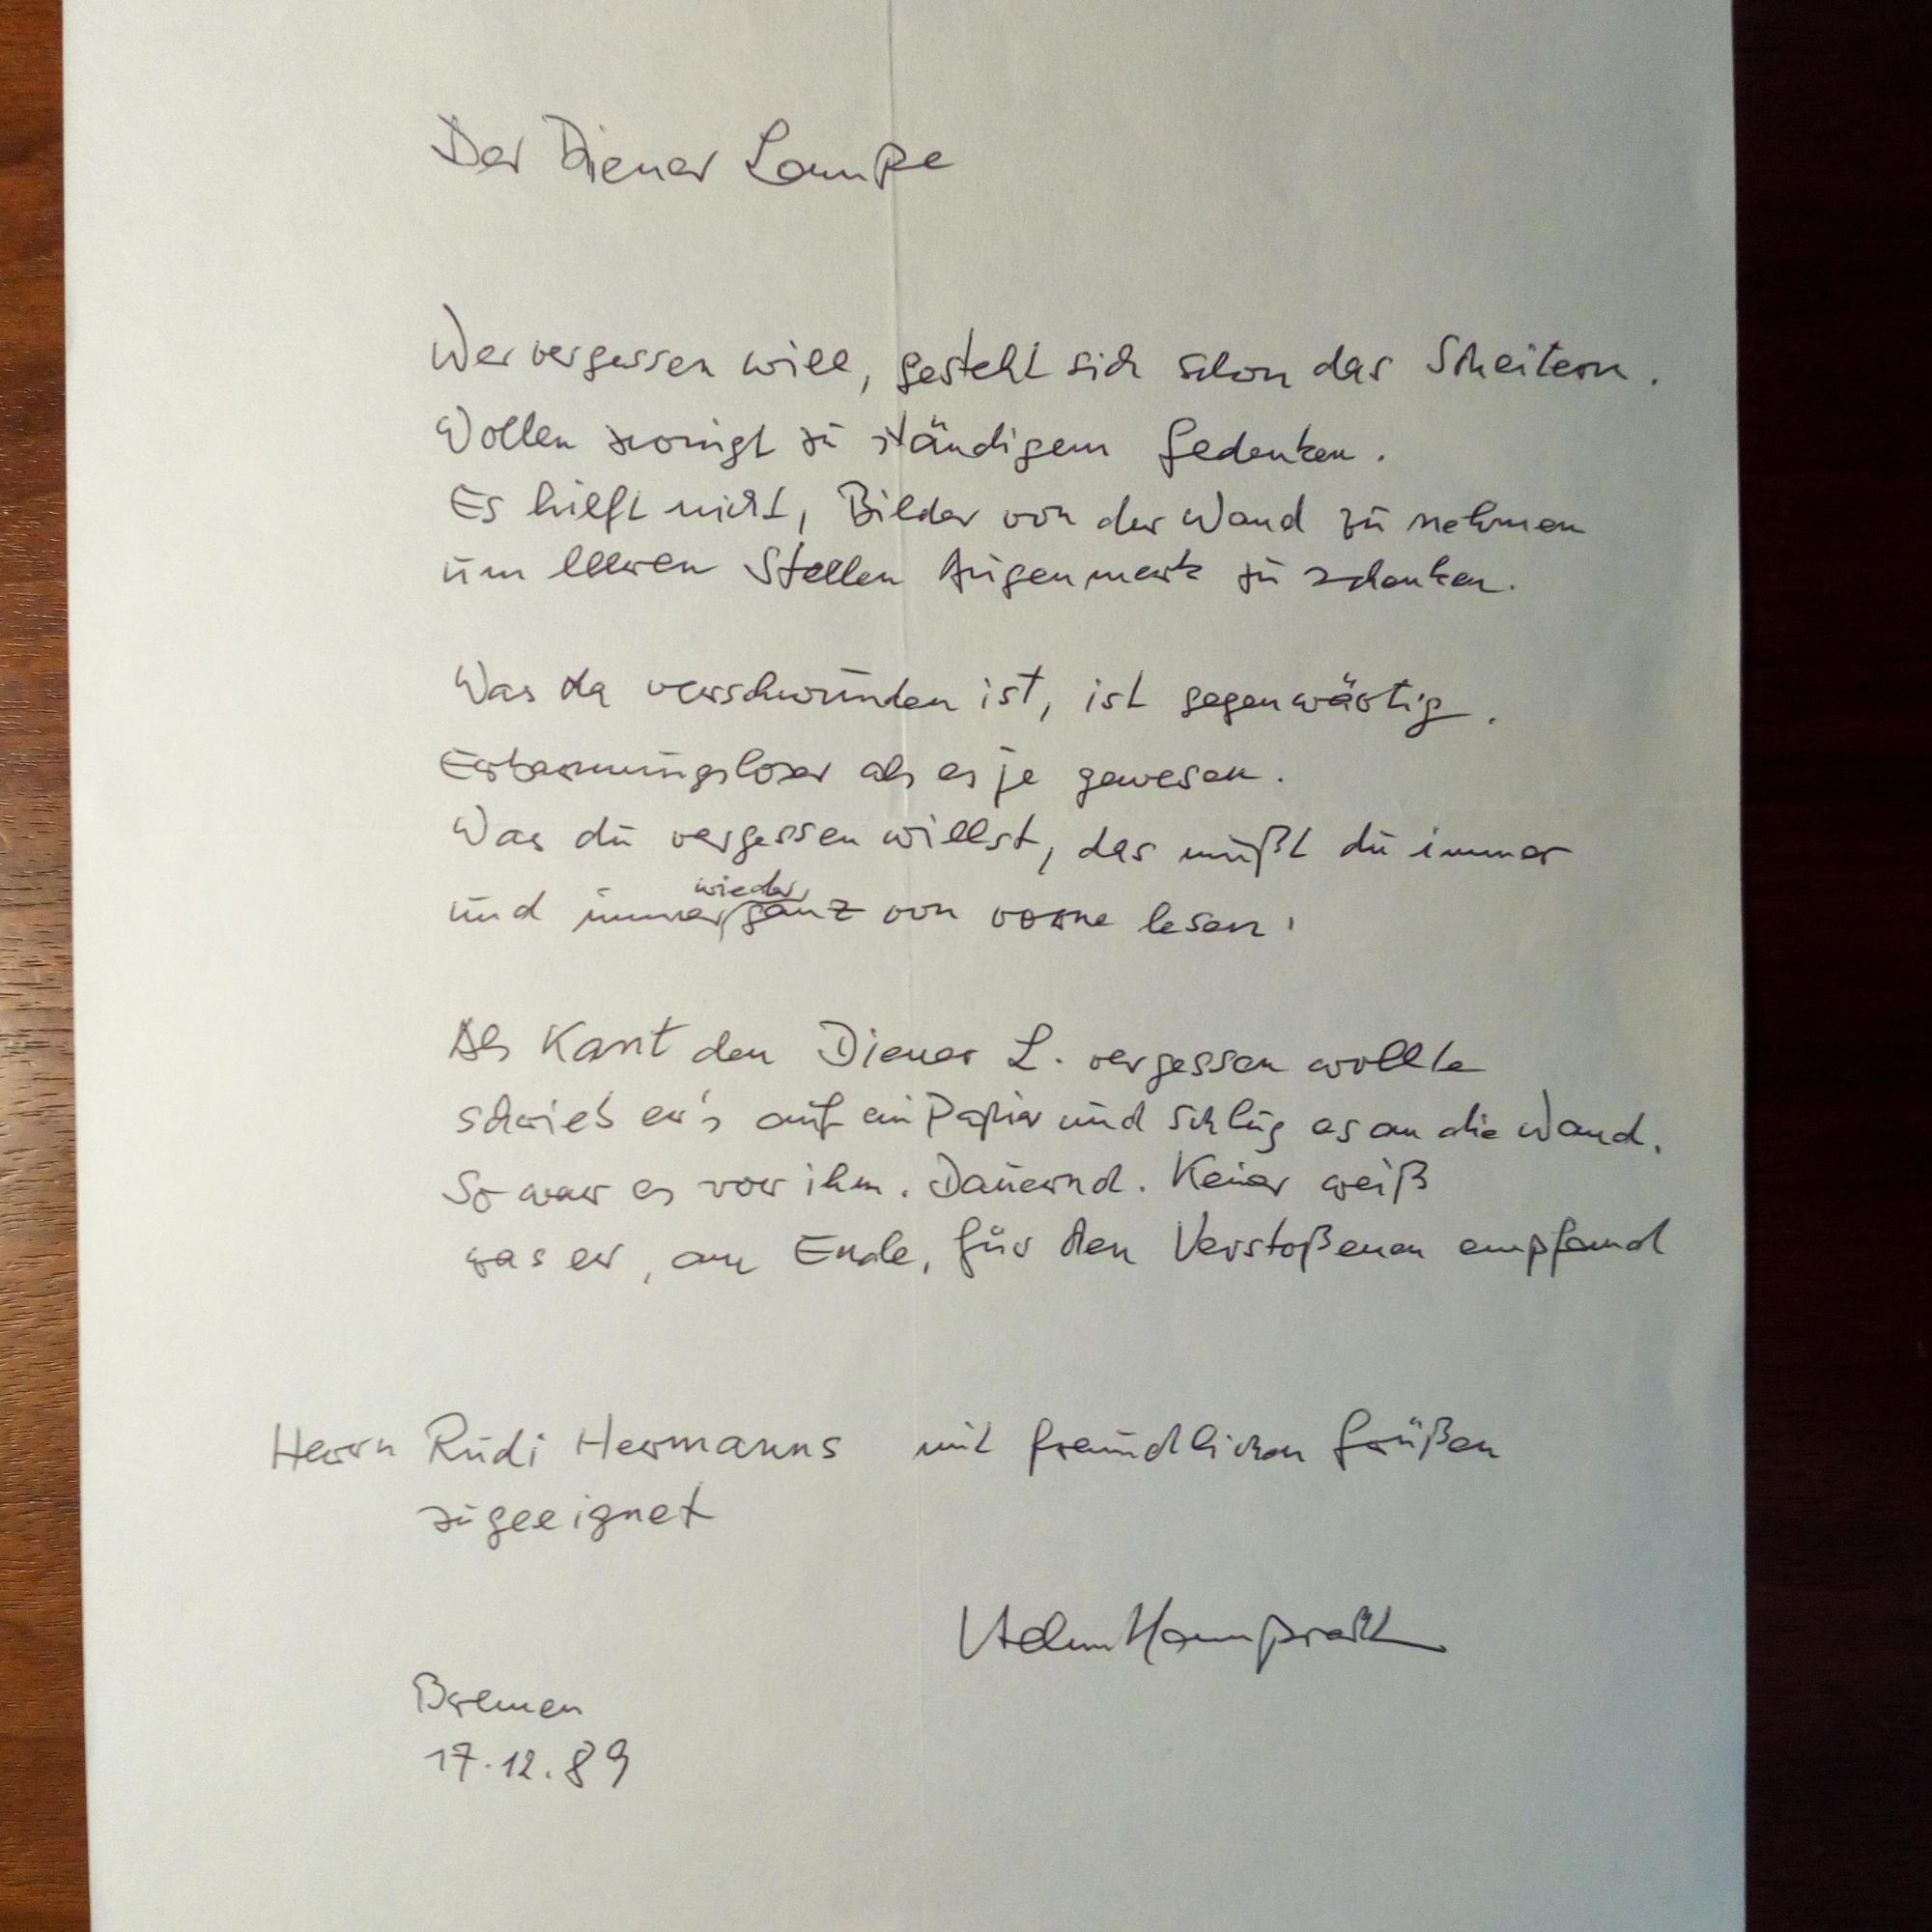 Der Diener Lampe
Wer vergessen will, gesteht sich schon das Scheitern.
Wollen zwingt zu ständigem Gedenken.
Es hilft nicht, Bilder von der Wand zu nehmen
um leeren Stellen Augenmerk zu schenken.
Was da verschwunden ist, ist gegenwärtig.
Erbarmungsloser als es je gewesen.
Was du vergessen willst, das mußt du immer
wieder
und immer ganz von vorne lesen.
Als Kant den Diener L. vergessen wollte
schrieb er's auf ein Papier und schlug es an die Wand.
So war es vor ihm. Dauernd. Keiner weiß
was er, am Ende, für den Verstoßenen empfand
Herrn Rudi Hermanns mit freundlichen Grüßen
zugeeignet
Bremen
17.12.89